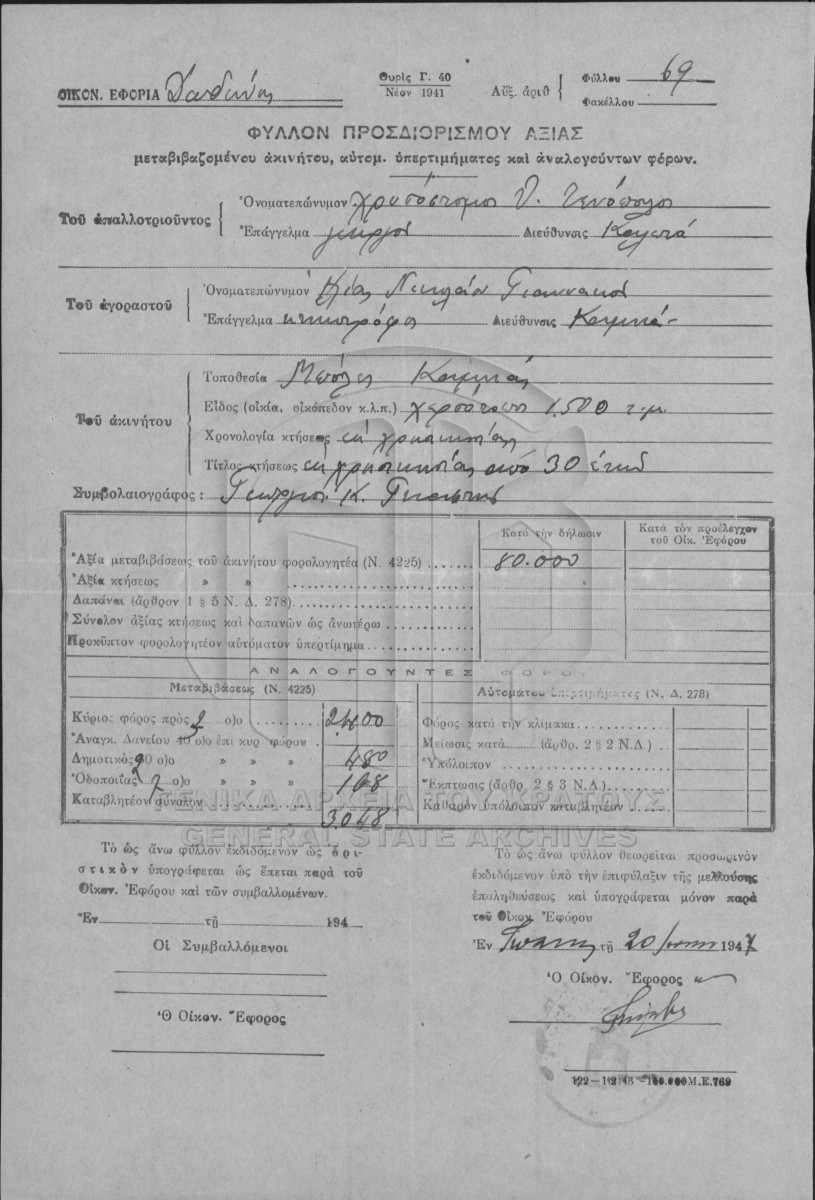 ΟΙΚΟΝ. ΕΦΟΡΙΑ
Θυρὶς Γ. 40
Νέον 1941
Αὔξ. ἀριθ
Φύλλου 69
Φακέλλου
ΦΥΛΛΟΝ ΠΡΟΣΔΙΟΡΙΣΜΟΥ ΑΞΙΑΣ
μεταβιβαζομένου ἀκινήτου, αὐτομ. ὑπερτιμήματος καὶ ἀναλογούντων φόρων.
Τοῦ ἀπαλλοτριοῦντος
Ὀνοματεπώνυμον Χρυσόστομος
Ἐπάγγελμα γεωργός Διεύθυνσις
Τοῦ ἀγοραστοῦ
Ὀνοματεπώνυμον Ηλίας Νικολάου
Ἐπάγγελμα κτηνοτρόφος Διεύθυνσις
Τοῦ ἀκινήτου
Τοποθεσία
Εἶδος (οἰκία, οἰκόπεδον κ.λ.π.) 1.500 τ.μ.
Χρονολογία κτήσεως ἐκ χρησικτησίας
Τίτλος κτήσεως ἐκ χρησικτησίας ἀπό 30 ἐτῶν
Συμβολαιογράφος : Γεώργιος Κ.
Κατὰ τὴν δήλωσιν
Κατὰ τὸν προέλεγχον τοῦ Οἰκ. Ἐφόρου
Ἀξία μεταβιβάσεως τοῦ ἀκινήτου φορολογητέα (Ν. 4225) 80.000
Ἀξία κτήσεως » »
Δαπάναι (ἄρθρον 1 § 5 Ν. Δ. 278)
Σύνολον ἀξίας κτήσεως καὶ δαπανῶν ὡς ἀνωτέρω
Προκῦπτον φορολογητέον αὐτόματον ὑπερτίμημα
ΑΝΑΛΟΓΟΥΝΤΕΣ ΦΟΡΟΙ
Μεταβιβάσεως (Ν. 4225)
Αὐτομάτου ὑπερτιμήματος (Ν. Δ. 278)
Κύριος φόρος πρὸς ο)ο 2400
Ἀναγκ. Δανείου 40 ο)ο ἐπὶ κυρ φόρου
Δημοτικὸς 20 ο)ο » » » 480
Ὁδοποιΐας 7 ο)ο » » » 168
Καταβλητέον σύνολον 3.048
Φόρος κατὰ τὴν κλίμακα
Μείωσις κατὰ (ἄρθρ. 2 § 2 Ν.Δ.)
Ὑπόλοιπον
Ἔκπτωσις (ἄρθρ. 2 § 3 Ν.Δ.)
Καθαρὸν ὑπόλοιπον καταβλητέον
ΓΕΝΙΚΑ ΑΡΧΕΙΑ ΤΟΥ ΚΡΑΤΟΥΣ
GENERAL STATE ARCHIVES
Τὸ ὡς ἄνω φύλλον ἐκδιδόμενον ὡς ὁρι-
στικὸν ὑπογράφεται ὡς ἕπεται παρὰ τοῦ
Οἰκον. Ἐφόρου καὶ τῶν συμβαλλομένων.
Ἐν τῇ 194
Οἱ Συμβαλλόμενοι
Ὁ Οἰκον. Ἔφορος
Τὸ ὡς ἄνω φύλλον θεωρεῖται προσωρινὸν
ἐκδιδόμενον ὑπὸ τὴν ἐπιφύλαξιν τῆς μελλούσης
ἐπαληθεύσεως καὶ ὑπογράφεται μόνον παρὰ
τοῦ Οἰκον. Ἐφόρου
Ἐν τῇ 20 1947
Ὁ Οἰκον. Ἔφορος
122—112)43—100.000 Μ.Ε.769